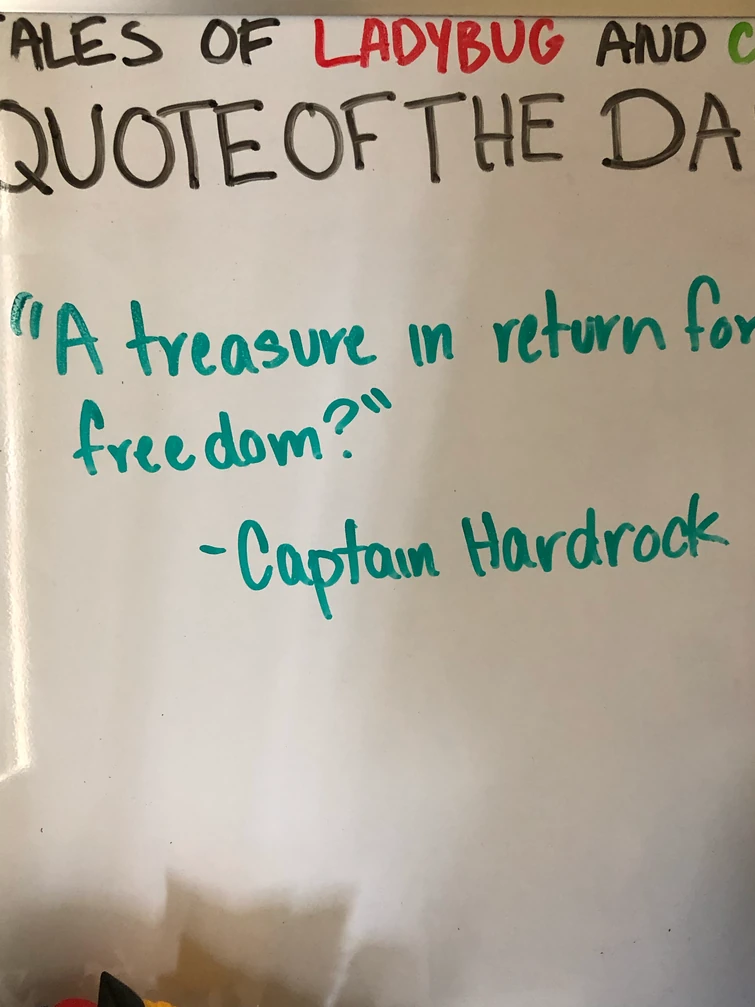 TALES OF LADYBUG AND C
QUOTE OF THE DA
"A treasure in return for
freedom?"
-Captain Hardrock